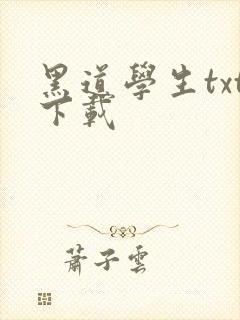 黑道學生txt
下載
蕭子雲